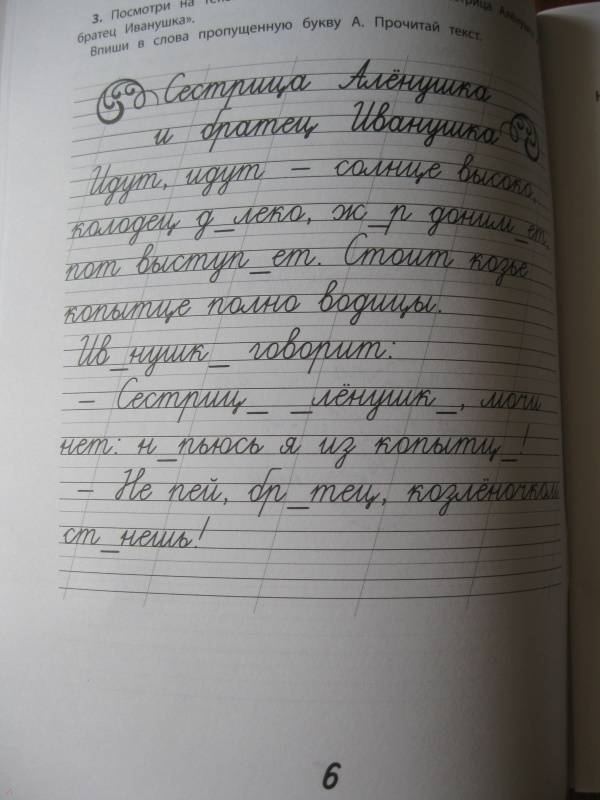 3. Посмотри на
братец Иванушка».
Впиши в слова пропущенную букву А. Прочитай текст.
Сестрица Алёнушка
и братец Иванушка
Идут, идут – солнце высоко,
колодец д_леко, ж_р доним_ет,
пот выступ_ет. Стоит козье
копытце полно водицы.
Ив_нушк_ говорит:
– Сестриц_ _лёнушк_, мочи
нет: н_пьюсь я из копытц_!
– Не пей, бр_тец, козлёночком
ст_нешь!
6